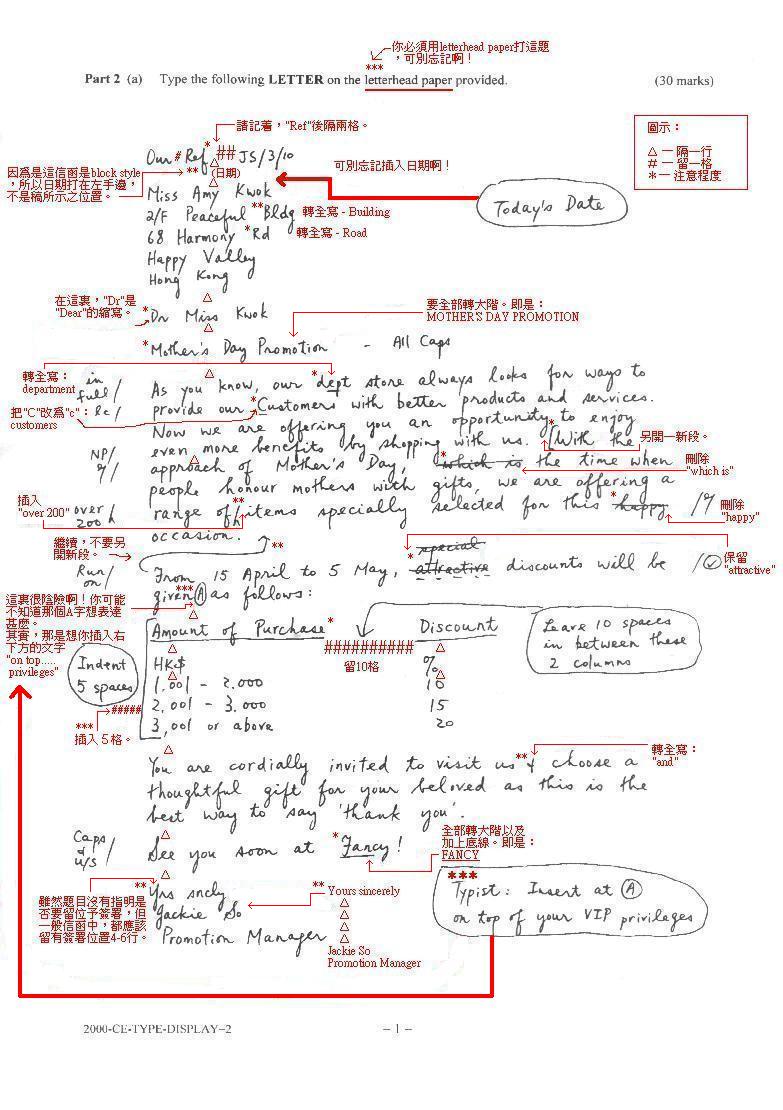 你必須用letterhead paper打這題
，可別忘記啊！
***
Part 2 (a) Type the following LETTER on the letterhead paper provided. (30 marks)
請記着，"Ref"後隔兩格。
圖示：
△ — 隔一行
# — 留一格
* — 注意程度
Our # Ref * ## JS/3/10
可別忘記插入日期啊！
因為是這信函是block style
，所以日期打在左手邊，
不是稿所示之位置。
** (日期)
Today's Date
Miss Amy Kwok
2/F Peaceful **Bldg 轉全寫 - Building
68 Harmony *Rd 轉全寫 - Road
Happy Valley
Hong Kong
在這裏，"Dr"是
"Dear"的縮寫。
*Dr Miss Kwok
要全部轉大階。即是：
MOTHER'S DAY PROMOTION
*Mother's Day Promotion - All Caps
轉全寫：
department
in full/
As you know, our *dept store always looks for ways to
把"C"改為"c"：
customers
lc/
provide our *Customers with better products and services.
Now we are offering you an opportunity to enjoy
NP/
even more benefits by shopping with us. *[With the
另開一新段。
approach of Mother's Day, *which is the time when
刪除
"which is"
people honour mothers with gifts, we are offering a
插入
"over 200"
over 200
range of items specially selected for this *happy
刪除
"happy"
occasion.
**
繼續，不要另
開新段。
Run on/
special
From 15 April to 5 May, *attractive discounts will be
保留
"attractive"
*** given Ⓐ as follows:
這裏很陰險啊！你可能
不知道那個A字想表達
甚麼。
其實，那是想你插入右
下方的文字
"on top.....
privileges"
Amount of Purchase* ########## Discount
留10格
Leave 10 spaces
in between these
2 columns
Indent
5 spaces
HK$ %
1,001 - 2,000 10
2,001 - 3,000 15
3,001 or above 20
#####
***
插入５格。
You are cordially invited to visit us** & choose a
轉全寫：
"and"
thoughtful gift for your beloved as this is the
best way to say 'thank you'.
Caps & u/s/
See you soon at *Fancy!
全部轉大階以及
加上底線。即是：
FANCY
**Yrs sncly
** Yours sincerely
雖然題目沒有指明是
否要留位予簽署，但
一般信函中，都應該
留有簽署位置4-6行。
Jackie So
Promotion Manager
Jackie So
Promotion Manager
***
Typist: Insert at Ⓐ
on top of your VIP privileges
2000-CE-TYPE-DISPLAY–2
– 1 –